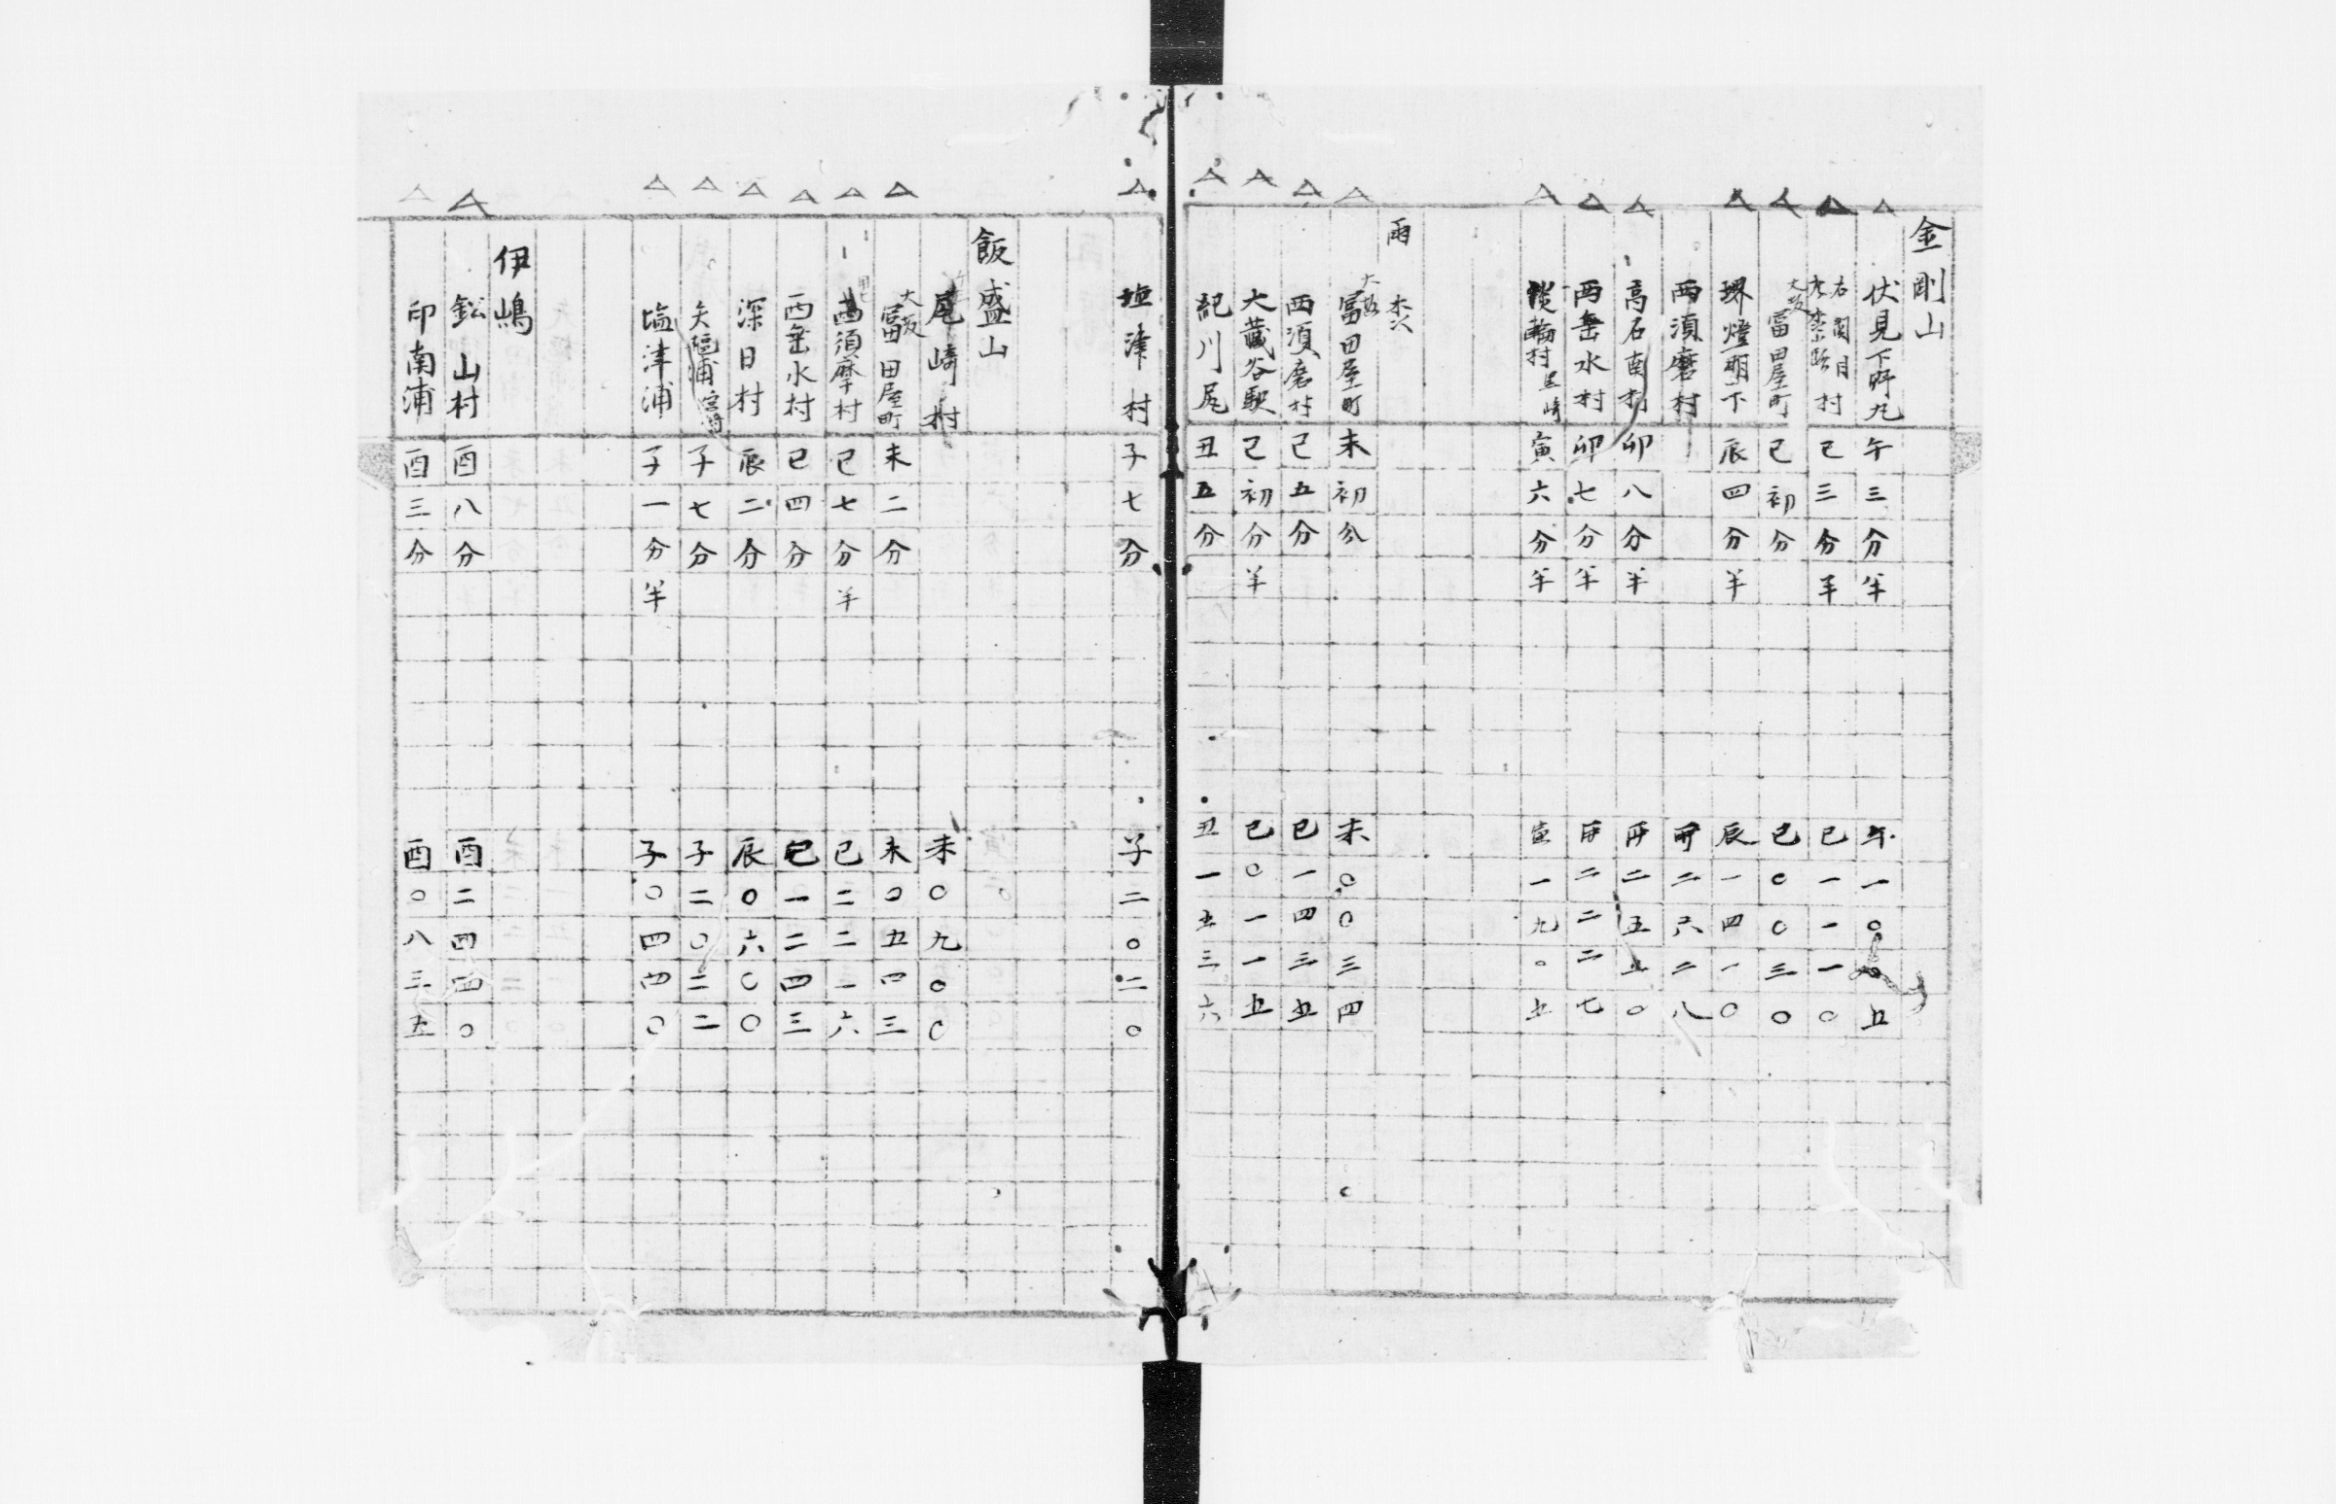 金剛山
伏見下野九 午三分半 午一〇〇五
右関目 左 村 巳三分半 巳一一一〇
大坂富田屋町 巳初分 巳〇〇三〇
堺燈明下 辰四分半 辰一四一〇
西須磨村 卯二六二八
高石南村 卯八分半 卯二五五〇
西垂水村 卯七分半 卯二二二七
淡輪村 寅六分半 寅一九〇五
雨
大坂富田屋町 未初分 未〇〇三四
西須磨村 巳五分 巳一四三五
大蔵谷駅 巳初分半 巳〇一一五
紀川尻 丑五分 丑一五三六
塩津村 子七分 子二〇二〇
飯盛山
尾崎村 未〇九〇〇
大坂富田屋町 未二分 未〇五四三
西須摩村 巳七分半 巳二二一六
西垂水村 巳四分 巳一二四三
深日村 辰二分 辰〇六〇〇
矢櫃浦 子七分 子二〇二二
塩津浦 子一分半 子〇四四〇
伊嶋
鉛山村 酉八分 酉二四四〇
印南浦 酉三分 酉〇八三五